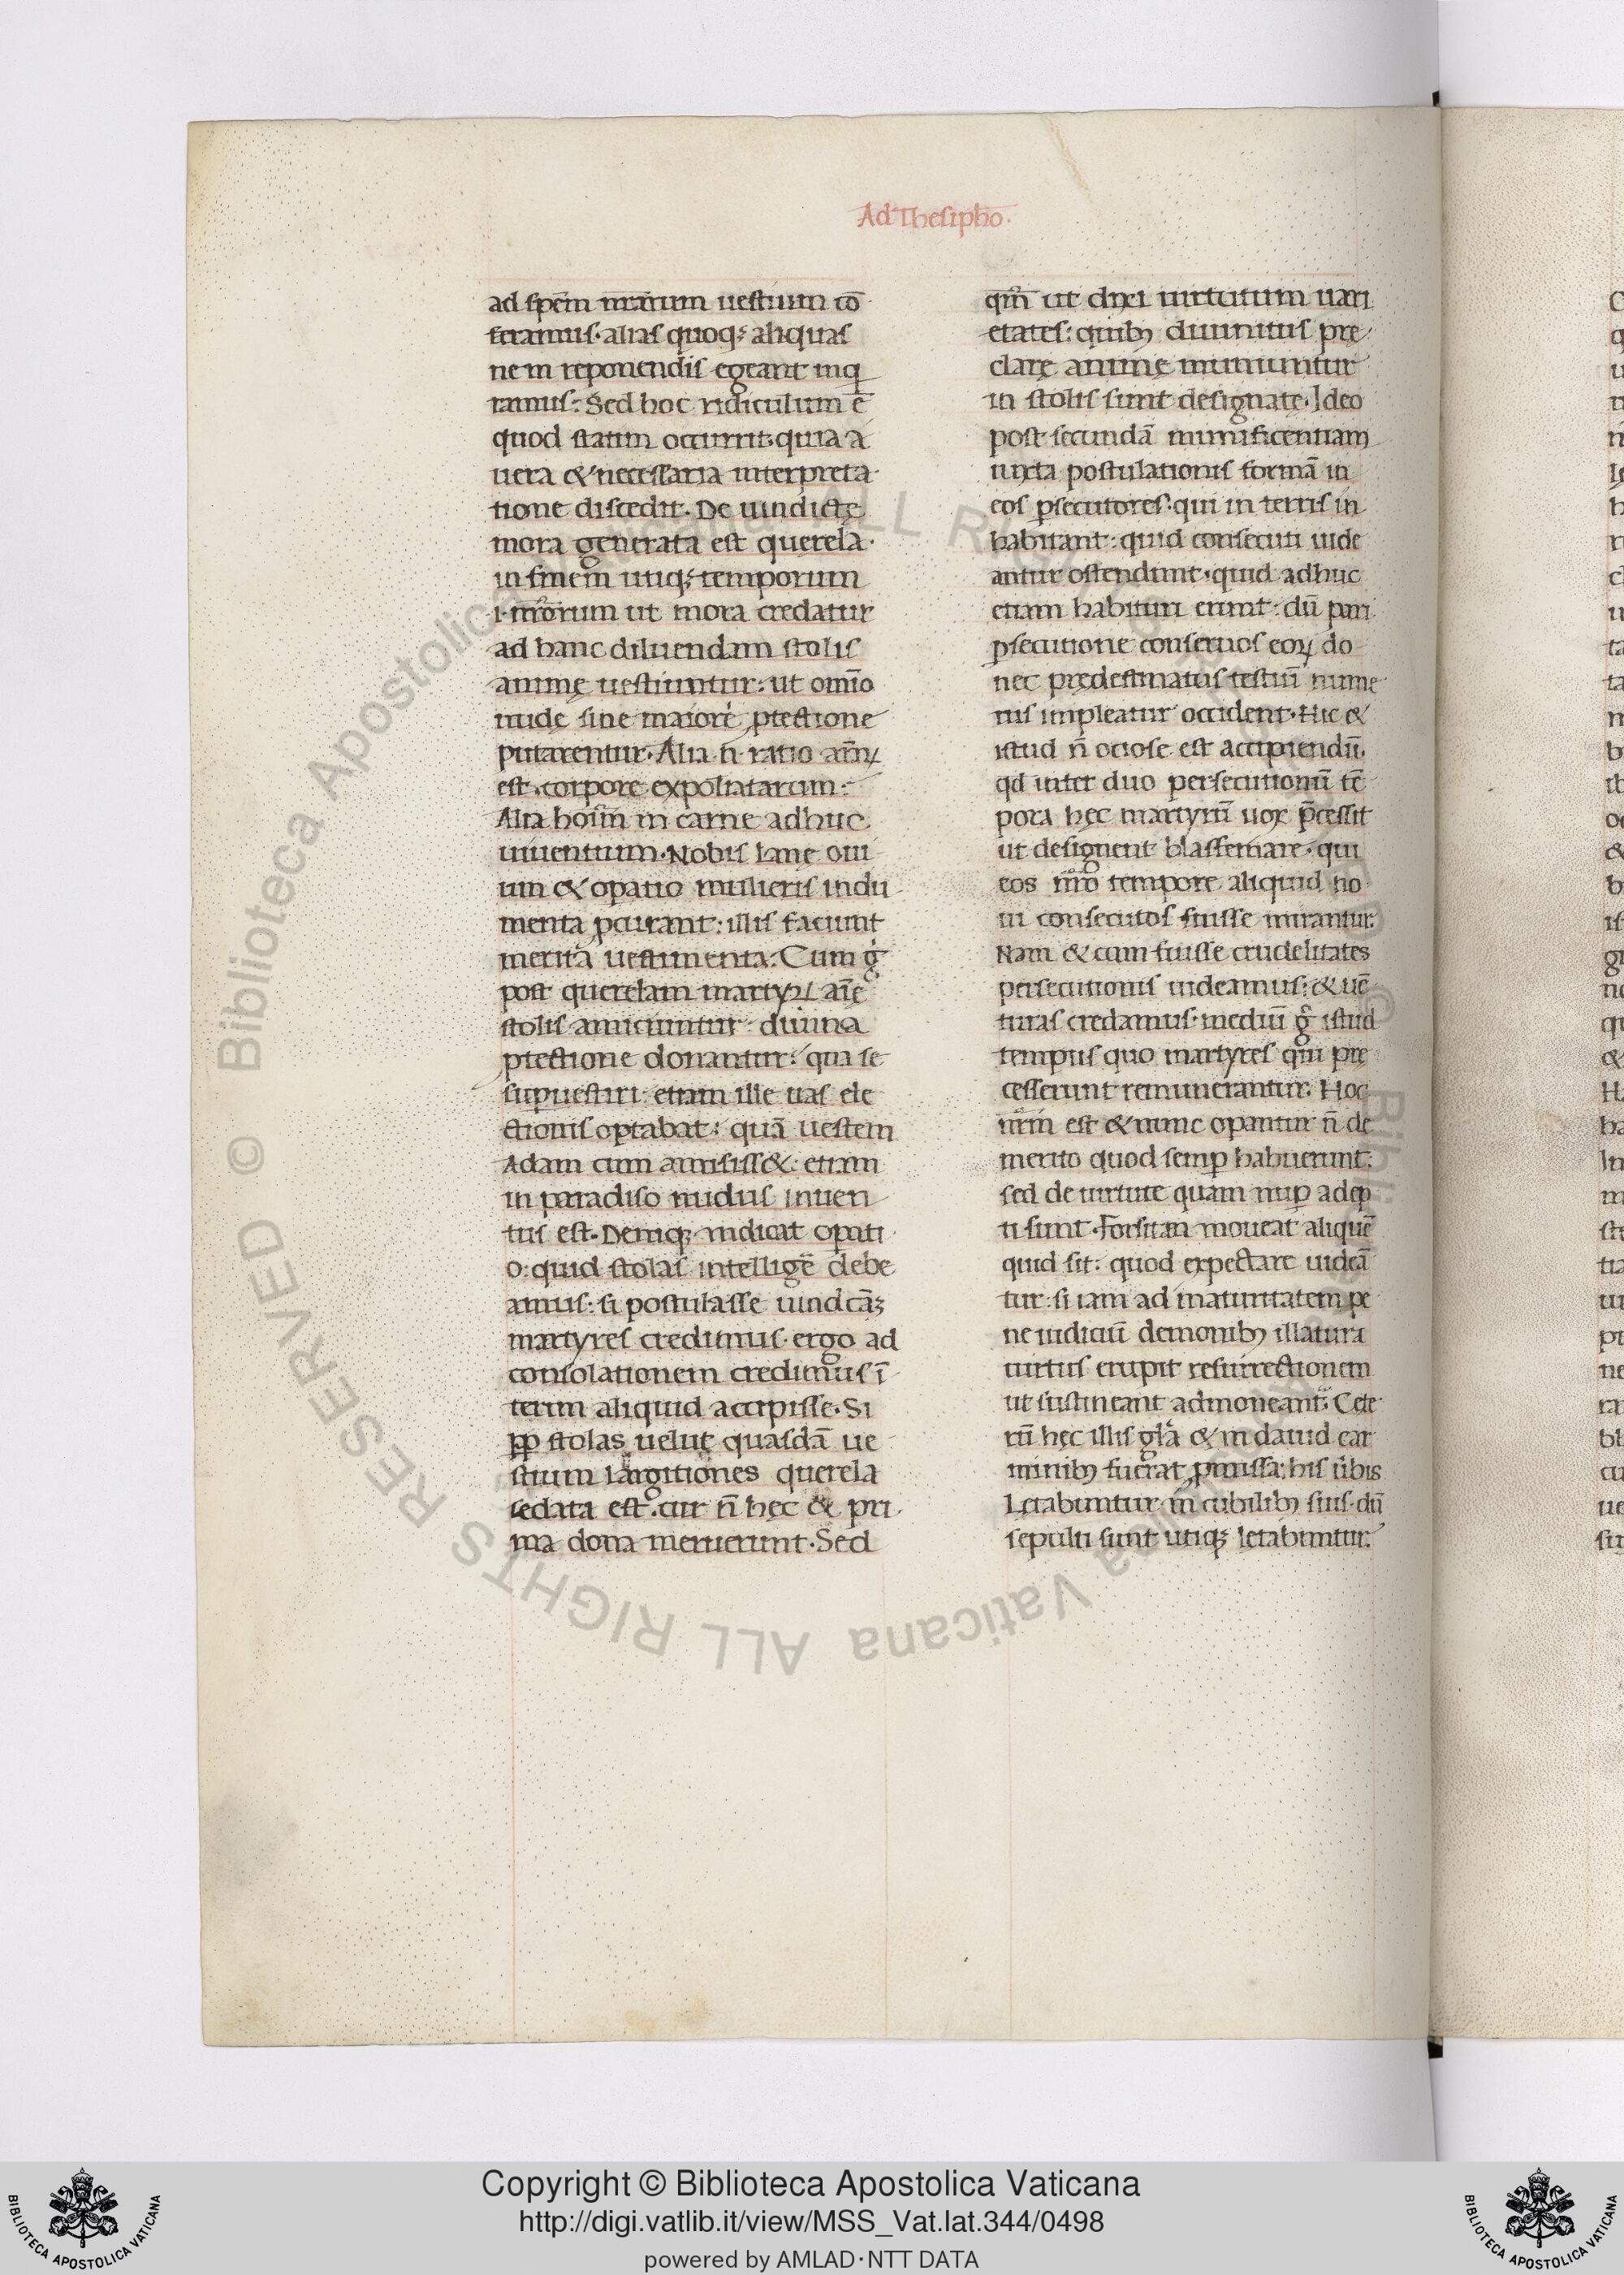 Ad Thesipho.
ad spem̄ nr̄arum uestium cō
feramus· alias quoq; aliquas
ne in reponendis egeant inq̇
ramus: Sed hoc ridiculum ē
quod statim occurrit· quia a
uera & necessaria interpreta
tione discedit. De uindictę
mora generata est querela·
in finem utiq; temporum
i· nr̄orum ut mora credatur
ad hanc diluendam stolis
animę uestiuntur: ut om̄io
nudę sine maiore ꝓtectione
putarentur. Alia ratio
est corpore expoliatarum:
Alia hoīm in carne adhuc
uiuentium. Nobis lane oui
um & opatio mulieris indu
menta ꝓcurant: illis faciunt
merita uestimenta: Cum gͥ
post querelam martyꝝ aīę
stolis amiciuntur: diuina
ꝓtectione donantur: qua se
supuestiri etiam ille uas ele
ctionis optabat: quā uestem
Adam cum amisiss&: etiam
in paradiso nudus inuen
tus est. Deniq; indicat opati
o: quid stolas intelligē debe
amus: si postulasse
martyres credimus· ergo ad
consolationem credimus ī
terim aliquid accipisse. Si
ꝓp stolas uelut quasdā ue
stium largitiones querela
sedata est: cur n̄ hęc & pri
ma dona meruerunt. Sed
qm̄ ut uirtutum uari
etates: quibꝫ diuinitus pre
clarę animę muniuntur
in stolis sunt designate. Ideo
post secundā munificentiam
iuxta postulationis formā in
eos ꝑsecutores· qui in terris in
habitant: quid consecuti uide
antur ostendunt· quid adhuc
etiam habituri erunt: dū pari
ꝑsecutione conseruos eoꝝ do
nec prędestinatus testiū nume
rus impleatur occident. Hic &
istud n̄ ociose est accipiendū.
qd inter duo persecutionū tē
pora hęc martyrū uox p̄cessit
ut designent blasfemare· qui
eos nr̄o tempore aliquid no
ui consecutos fuisse mirantur.
Nam & cum fuisse crudelitates
persecutionis uideamus: & uē
turas credamus· mediū gͦ istud
tempus quo martyres qui pre
cesserunt remunerantur. Hoc
nr̄m est & nunc opantur n̄ de
merito quod semꝑ habuerunt:
sed de uirtute quam nuꝑ adep
ti sunt. Forsitan moueat aliquē
quid sit: quod expectare uideā
tur: si iam ad maturitatem pe
ne iudiciū demonibꝫ illatura
uirtus erupit resurrectionem
ut sustineant admoneant: Cete
rū hęc illis gl̄a & in dauid car
minibꝫ fuerat ꝓmissa: his ūbis
Letabuntur in cubilibꝫ suis· dū
sepulti sunt utiq; letabuntur.
Copyright © Biblioteca Apostolica Vaticana
http://digi.vatlib.it/view/MSS_Vat.lat.344/0498
powered by AMLAD·NTT DATA